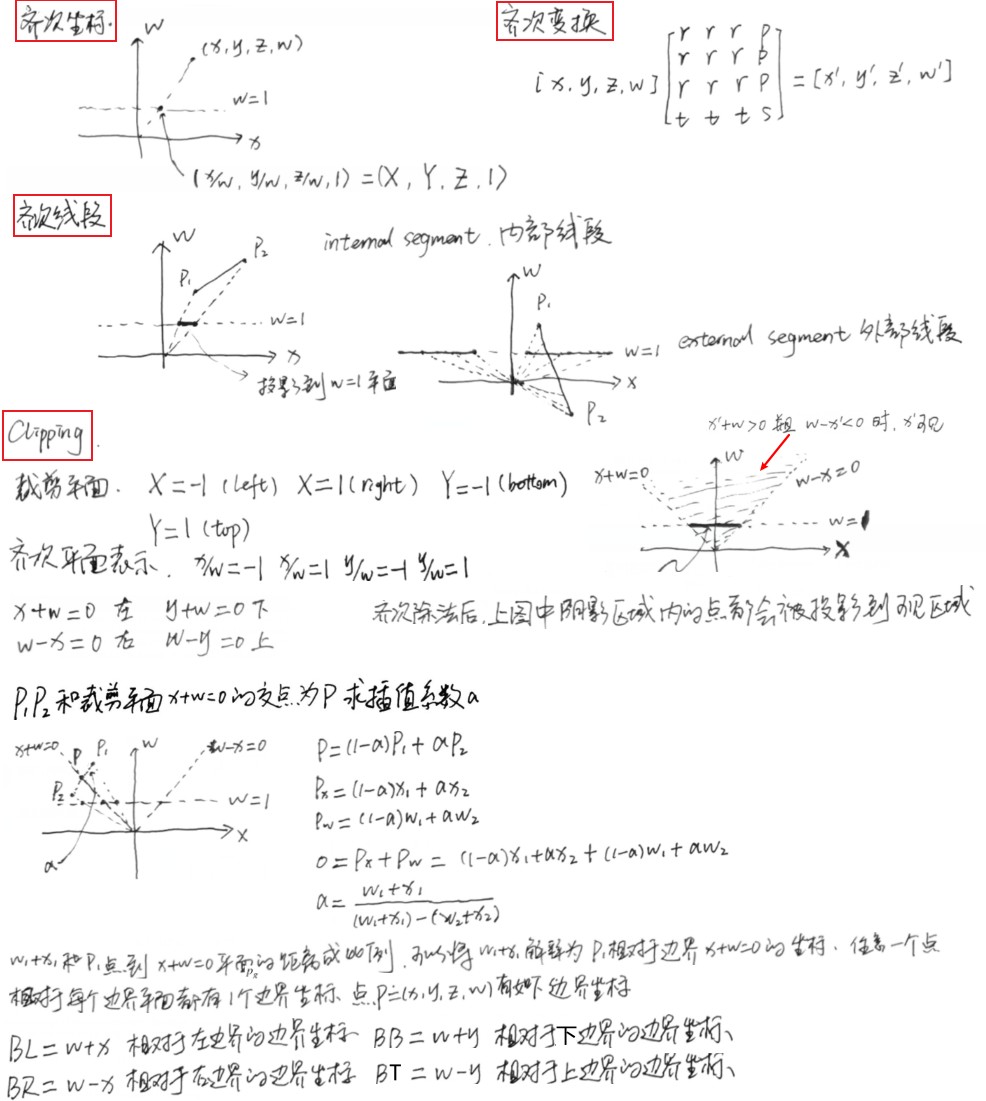 齐次坐标.
W
(x, y, z, w)
w=1
x
(x/w, y/w, z/w, 1) = (X, Y, Z, 1)
齐次变换
[x, y, z, w] [r r r p
r r r p
r r r p
t t t s] = [x', y', z', w']
齐次线段
internal segment. 内部线段
W
P₁
P₂
w=1
x
投影到 w=1 平面
W
P₁
w=1
X
P₂
external segment 外部线段
Clipping.
裁剪平面. X=-1 (left) X=1 (right) Y=-1 (bottom)
Y=1 (top)
齐次平面表示. x/w=-1 x/w=1 y/w=-1 y/w=1
x+w=0 左 y+w=0 下
w-x=0 右 w-y=0 上
x'+w>0 且 w-x'<0 时, x'可见
x+w=0
W
w-x=0
w=1
X
齐次除法后, 上图中阴影区域内的点都会被投影到可见区域
P₁P₂和裁剪平面 x+w=0 的交点为P 求插值系数a
x+w=0
P
P₁
W
w-x=0
P₂
w=1
X
a
P=(1-a)P₁+aP₂
Px=(1-a)x₁+ax₂
Pw=(1-a)w₁+aw₂
0=Px+Pw=(1-a)x₁+ax₂+(1-a)w₁+aw₂
a= w₁+x₁ / (w₁+x₁)-(w₂+x₂)
w₁+x₁ 和P₁点到 x+w=0 平面的距离成比例, 可以将 w₁+x₁ 解释为 P₁相对于边界 x+w=0 的坐标. 任意一个点
相对于每个边界平面都有1个边界坐标、点P=(x,y,z,w)有如下边界坐标
BL=w+x 相对于左边界的边界坐标 BB=w+y 相对于下边界的边界坐标、
BR=w-x 相对于右边界的边界坐标 BT=w-y 相对于上边界的边界坐标、